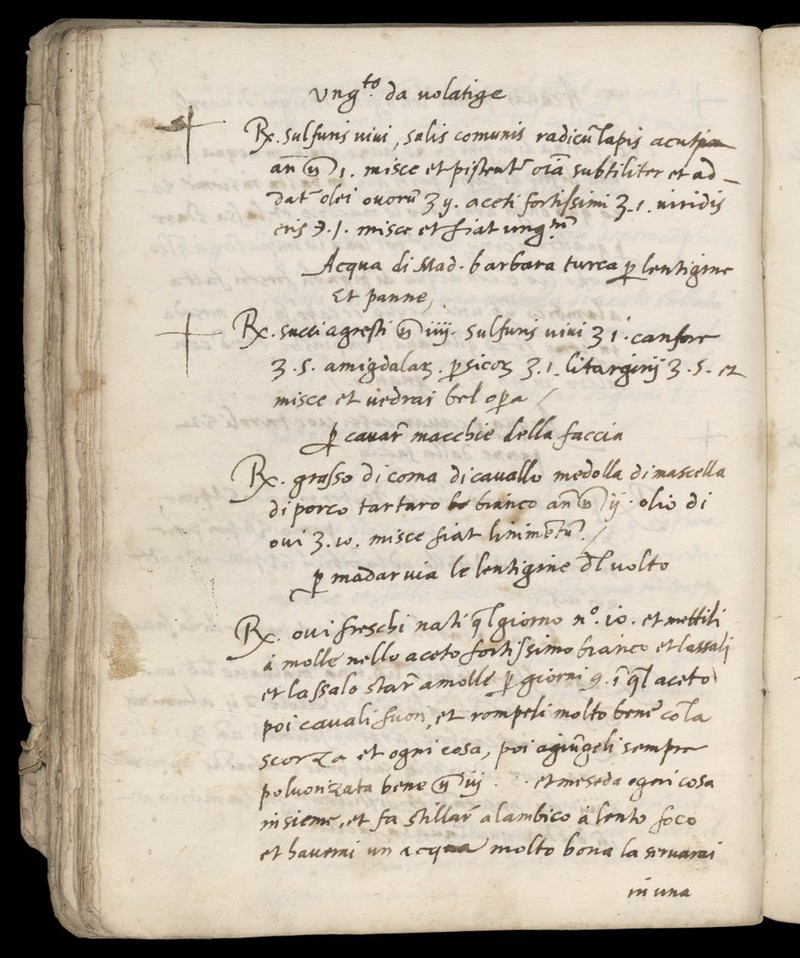 Ung.to da volatige
Rx. sulfuris vivi, salis comunis radicū lapis acuti
an̄ ℥ 1. misce et pistent.r oīa subtiliter et ad-
dat.r olei ovorū ʒ ij. aceti fortissimi ʒ. 1. viridis
eris ℈. 1. misce et fiat ung.tū
Acqua di Mad. barbara turca p̱ lentigine
Et panne,
Rx. succi agresti ℥ iiij. sulfuris vivi ʒ i. canfore
ʒ. s. amigdalaꝝ. p̱sicoꝝ ʒ. 1. litargirij ʒ. s. et
misce et vedrai bel op̱a /
p̱ cavar̄ macchie della faccia
Rx. grasso di coma di cavallo medolla di mascella
di porco tartaro bianco an̄ ℥ ij. olio di
ovi ʒ. 10. misce fiat linimētū. /
p̱ madar via le lentigine d̄l volto
Rx. ovi freschi nati q̄l giorno n.o 10. et mettili
à molle nello aceto fortissimo bianco et lassali
et lassalo star̄ a molle p̱ giorni 9. ī q̄l aceto
poi cavali fuori, et rompeli molto bene cō la
scorza et ogni cosa, poi agiūgeli sempre
polvorizata bene ℥ iij . . et meseda ogni cosa
insieme, et fa stillar̄ a lambico à lento foco
et haverai un acqua molto bona la servarai
in una